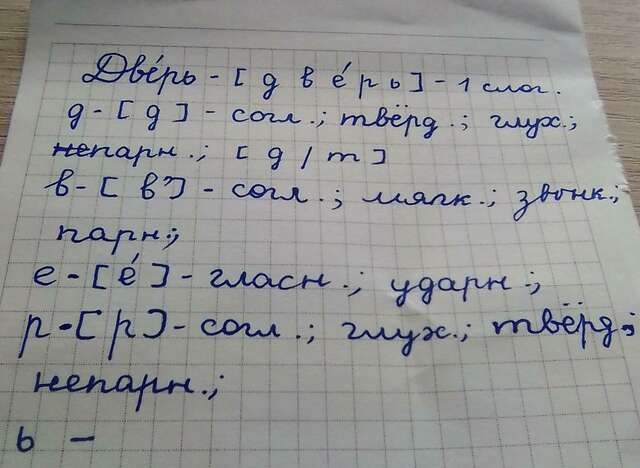 Две́рь - [ д в е́ р ь ] - 1 слог.
д - [ д ] - согл.; твёрд.; глух.;
непарн.; [ д / т ]
в - [ в' ] - согл.; мягк.; звонк.;
парн.;
е - [ е́ ] - гласн.; ударн.;
р - [ р ] - согл.; глух.; твёрд.;
непарн.;
ь -